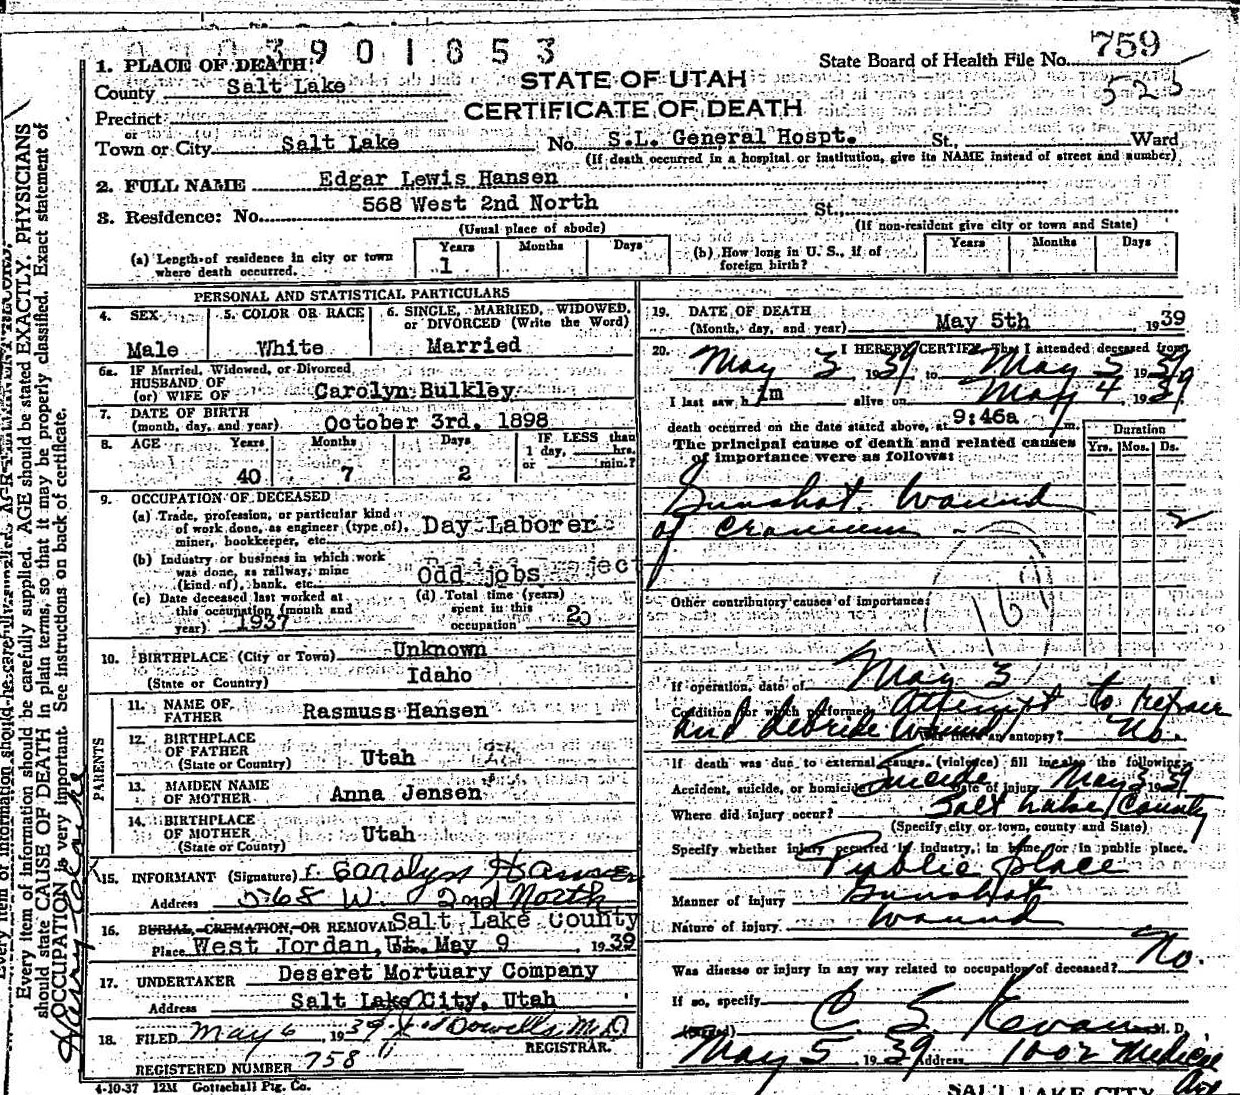 3901853
1. PLACE OF DEATH:
County Salt Lake
Precinct
or
Town or City Salt Lake
STATE OF UTAH
CERTIFICATE OF DEATH
State Board of Health File No. 759
525
No. S.L. General Hospt. St., Ward
(If death occurred in a hospital or institution, give its NAME instead of street and number)
2. FULL NAME Edgar Lewis Hansen
3. Residence: No. 568 West 2nd North St.,
(Usual place of abode)
(If non-resident give city or town and State)
(a) Length of residence in city or town
where death occurred.
Years Months Days
1
(b) How long in U. S., if of
foreign birth?
Years Months Days
PERSONAL AND STATISTICAL PARTICULARS
4. SEX
Male
5. COLOR OR RACE
White
6. SINGLE, MARRIED, WIDOWED,
or DIVORCED (Write the Word)
Married
6a. IF Married, Widowed, or Divorced
HUSBAND OF
(or) WIFE OF Carolyn Bulkley
7. DATE OF BIRTH
(month, day, and year) October 3rd, 1898
8. AGE Years Months Days
40 7 2
IF LESS than
1 day, hrs.
or min.?
9. OCCUPATION OF DECEASED
(a) Trade, profession, or particular kind
of work done, as engineer (type of),
miner, bookkeeper, etc. Day Laborer
(b) Industry or business in which work
was done, as railway, mine
(kind of), bank, etc. Odd jobs
(c) Date deceased last worked at
this occupation (month and
year) 1937
(d) Total time (years)
spent in this
occupation 20
10. BIRTHPLACE (City or Town) Unknown
(State or Country) Idaho
PARENTS
11. NAME OF
FATHER Rasmuss Hansen
12. BIRTHPLACE
OF FATHER
(State or Country) Utah
13. MAIDEN NAME
OF MOTHER Anna Jensen
14. BIRTHPLACE
OF MOTHER
(State or County) Utah
15. INFORMANT (Signature) Carolyn Hansen
Address 568 W. 2nd North
16. BURIAL, CREMATION, OR REMOVAL Salt Lake County
Place West Jordan, Ut. May 9 1939
17. UNDERTAKER Deseret Mortuary Company
Address Salt Lake City, Utah
18. FILED May 6, 1939 M.D.
REGISTRAR.
REGISTERED NUMBER 758
4-10-37 12M Gottschall Ptg. Co.
19. DATE OF DEATH
(Month, day, and year) May 5th, 1939
20. I HEREBY CERTIFY, That I attended deceased from
May 3, 1939 to May 5, 1939
I last saw h im alive on May 4, 1939
death occurred on the date stated above, at 9:46a m.
The principal cause of death and related causes
of importance were as follows:
Duration
Yrs. Mos. Ds.
Gunshot wound
of Cranium 2
161
Other contributory causes of importance:
If operation, date of May 3
Condition for which performed Attempt to repair
and debride wound Was there an autopsy? No.
If death was due to external causes (violence) fill in also the following:
Accident, suicide, or homicide Suicide Date of injury May 3 1939
Where did injury occur? Salt Lake County
(Specify city or town, county and State)
Specify whether injury occurred in industry, in home, or in public place.
Public place
Manner of injury Gunshot
Nature of injury wound
Was disease or injury in any way related to occupation of deceased? No.
If so, specify
(Signed) C. S. Evans M. D.
May 5, 1939 Address 1002 Medical
SALT LAKE CITY
Every item of information should be carefully supplied. AGE should be stated EXACTLY. PHYSICIANS
should state CAUSE OF DEATH in plain terms, so that it may be properly classified. Exact statement of
OCCUPATION is very important. See instructions on back of certificate.